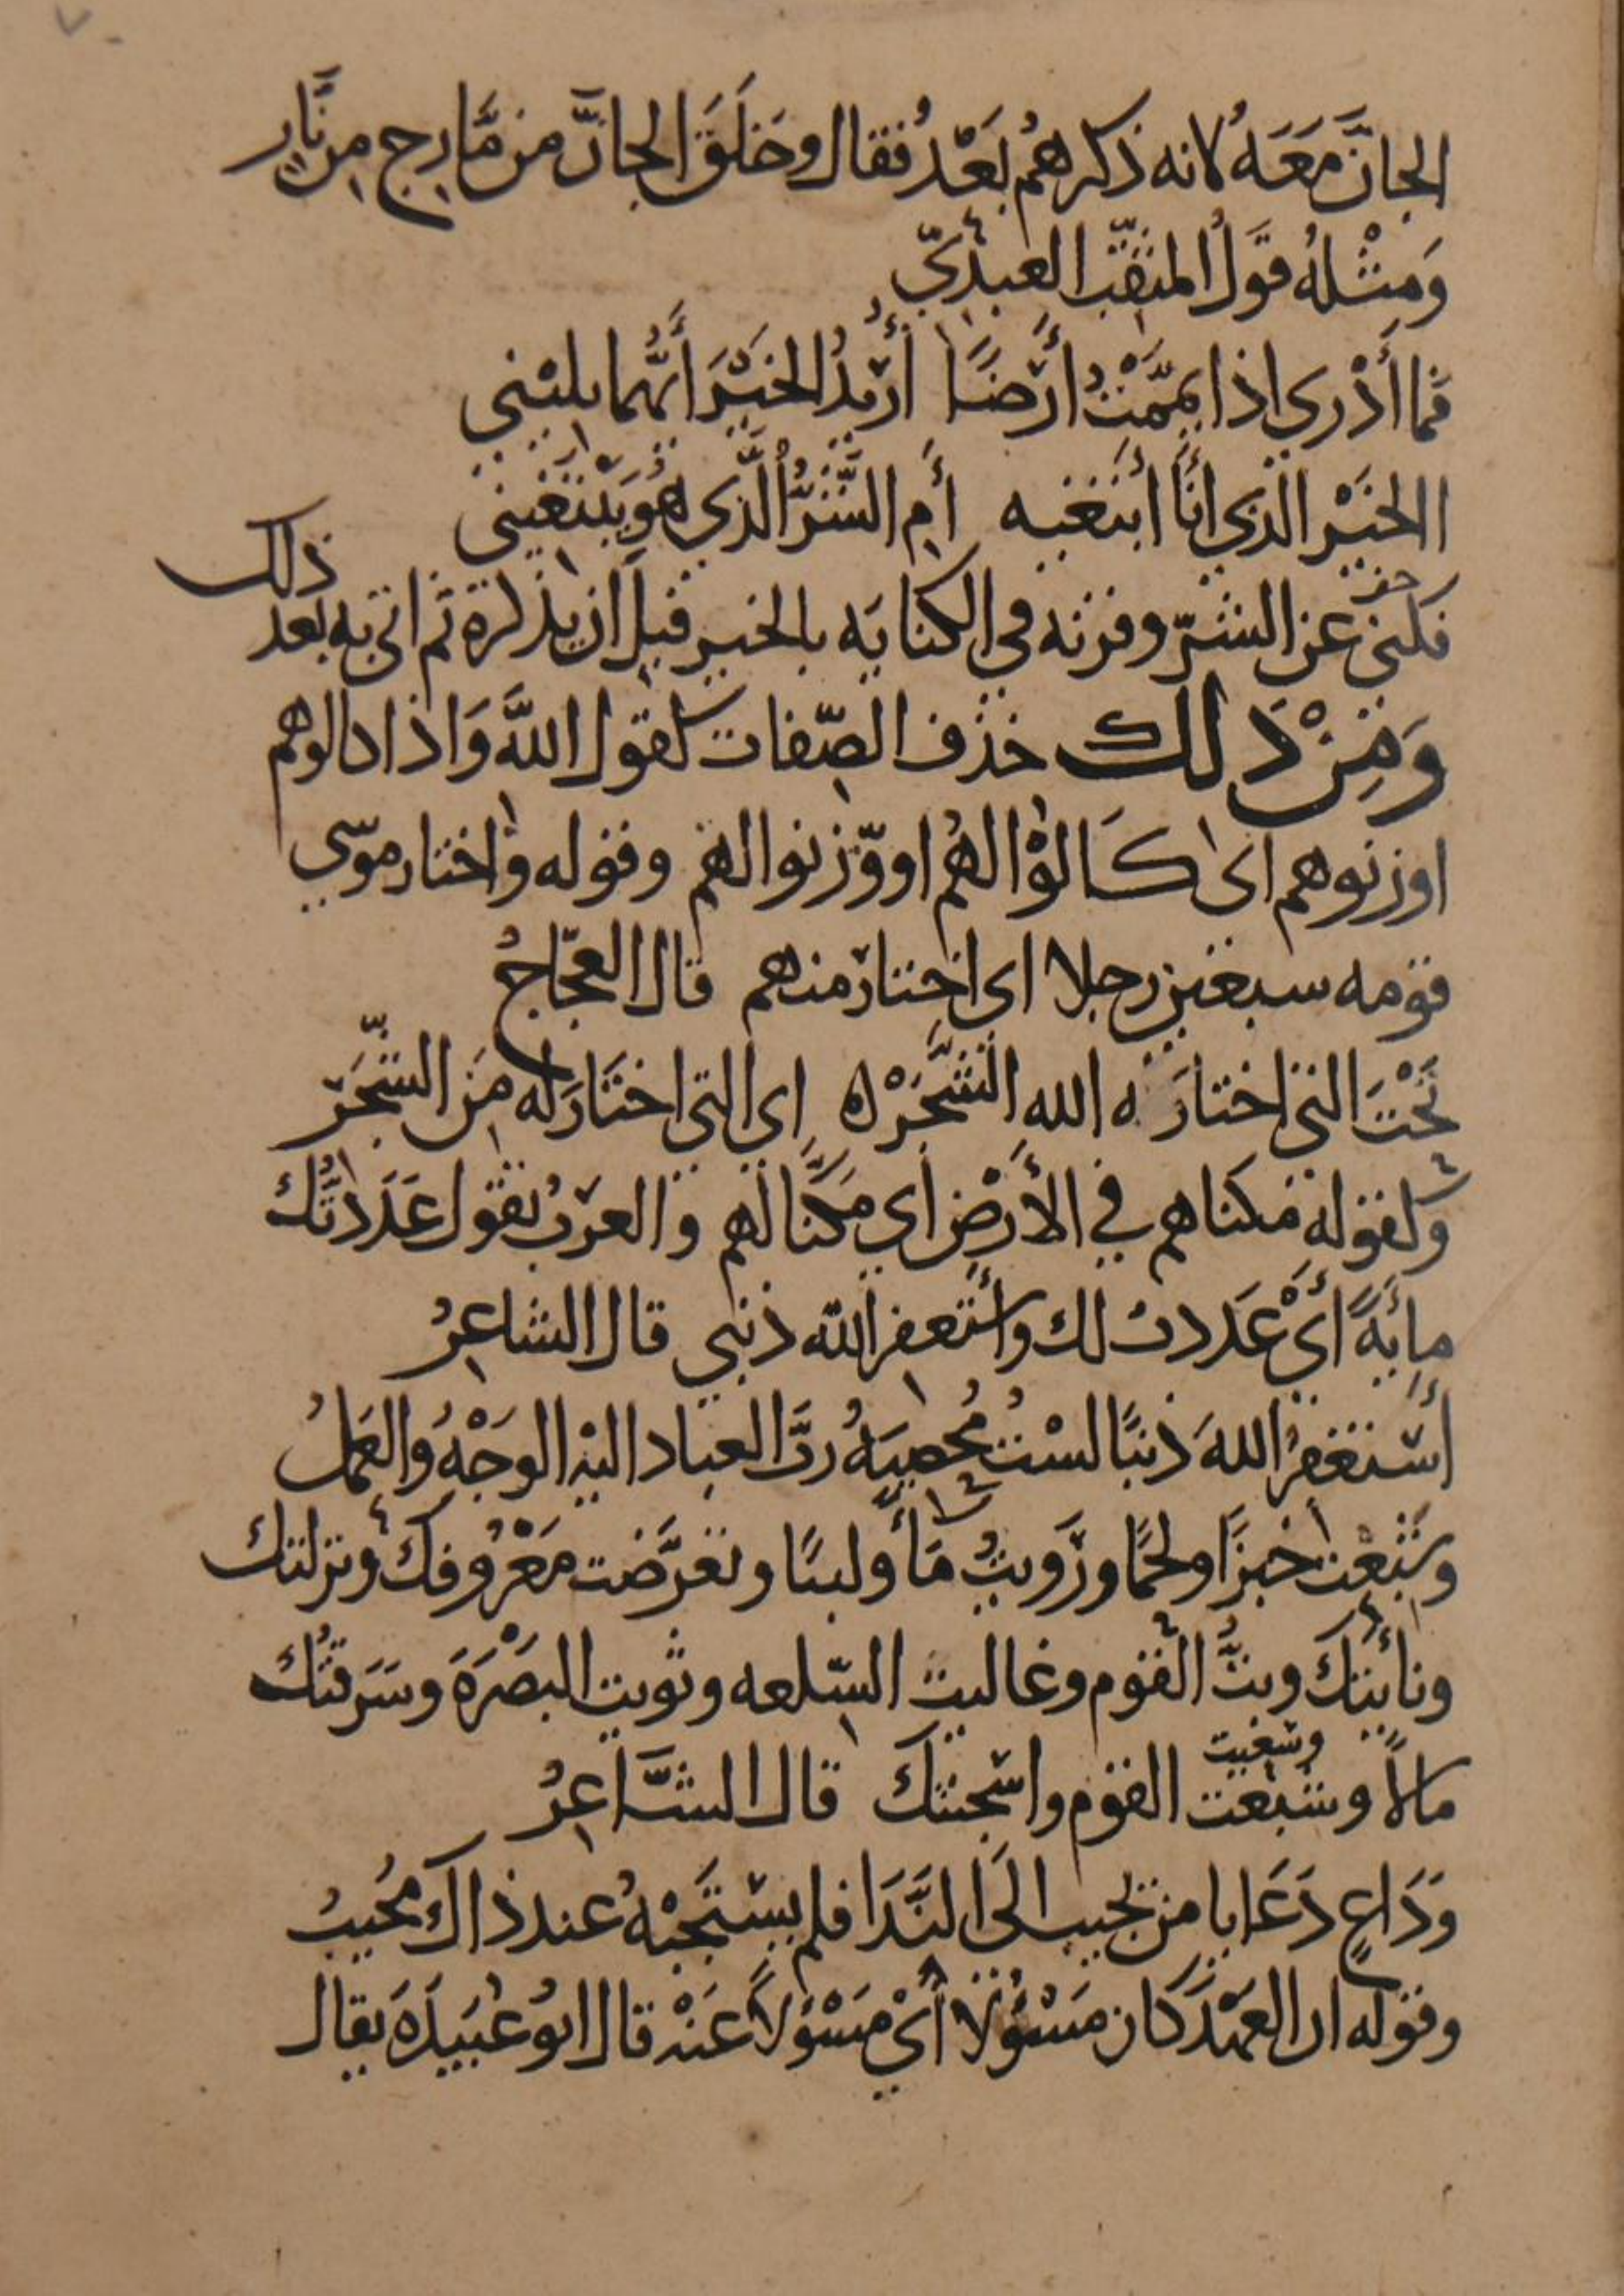 الجانَّ مَعَهُ لانه ذكرهُم بَعْدُ فقال وخَلَقَ الجانَّ من مَّارِجٍ مِن نَّارٍ
وَمِثْلهُ قَوْلُ المثقّب العبدِيّ
فما أَدْرِي اذا يمّمْتُ أَرْضًا أُرِيدُ الخَيْرَ أَيُّهُما يلِيْني
االخَيْر الذي أنَا أبْتَغيه أَمِ الشَّرُّ الَّذي هُوَ يَبْتَغِيني
فكنى عن الشرّ وقرنه في الكنايَه بالخير قبل ان يذكره ثم اتى به بعد ذلك
وَمِنْ ذَلك حذف الصّفات كقول اللَّه وَاذا كالوهم
او زنوهم اى كَالوْا لهُم او وّزنوا لهم وقوله واختار موسى
قومه سبعين رجلا اى اختار منهم قال العجّاجُ
تَحْتَ التي اختارَ له الله الشَّجَرْ اي التي اختَارَ له مِنَ الشّجَر
وكقوله مكناهم في الأَرْضِ أي مَكَّنَّا لهم والعرَبُ تقول عَدَدتُّكَ
مِائَةً أَيْ عَددتُ لك وأستغفر اللّه ذنبي قال الشاعِرُ
أسْتغفِرُ اللهَ ذنبًا لسْتُ مُحصِيَهُ ربَّ العباد اليْه الوَجْهُ والعَملُ
وشَبِعْت خبزًا ولحمًا ورَويتُ مَاءً ولبنًا وتعرَّضت مَعْرُوفكَ ونزلتك
ونأيتك وبتُّ القوم وغاليت السّلعه وثويت البَصْرَةَ وسَرَقتُكَ
مالاً وشبعت وسَغبت القوم واسْتجبتك قال الشَّاعِرُ
وَدَاعٍ دَعَا يا من يجيب الَى النَّدَا فلم يسْتجَبْهُ عند ذاك مُجيبُ
وقوله ان العَهْدَ كان مَسْؤُلا أَيْ مَسْؤلاً عَنْه قال ابُو عُبَيدَةَ يقال